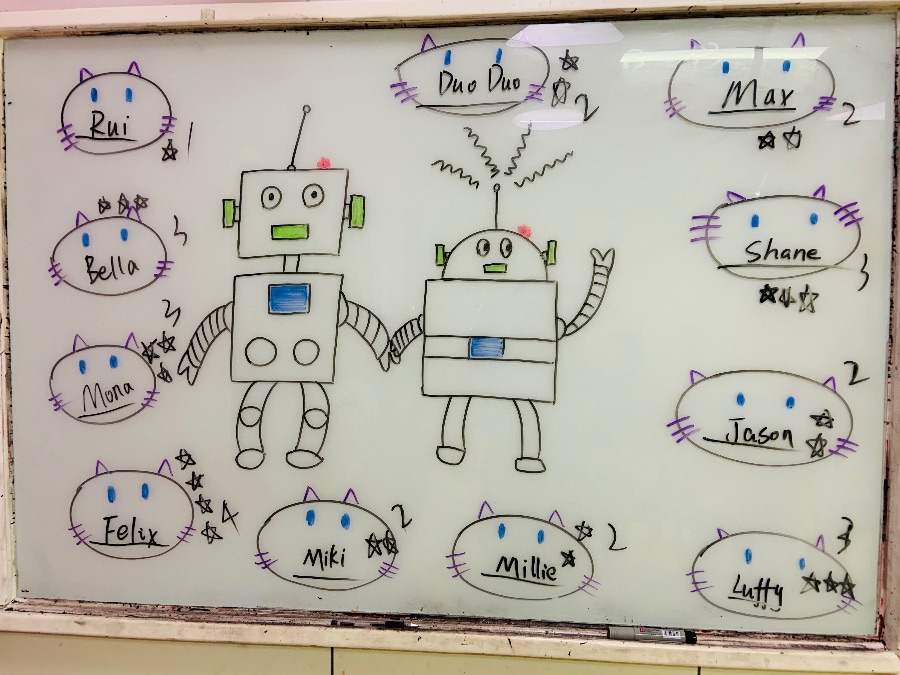 Rui
1
Duo Duo
2
Max
2
Bella
3
Shane
3
Mona
3
Jason
2
Felix
4
Miki
2
Millie
2
Luffy
3